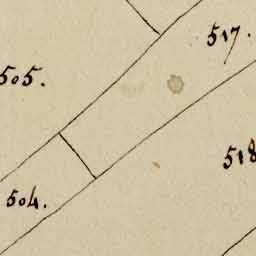 517.
505.
518
504.